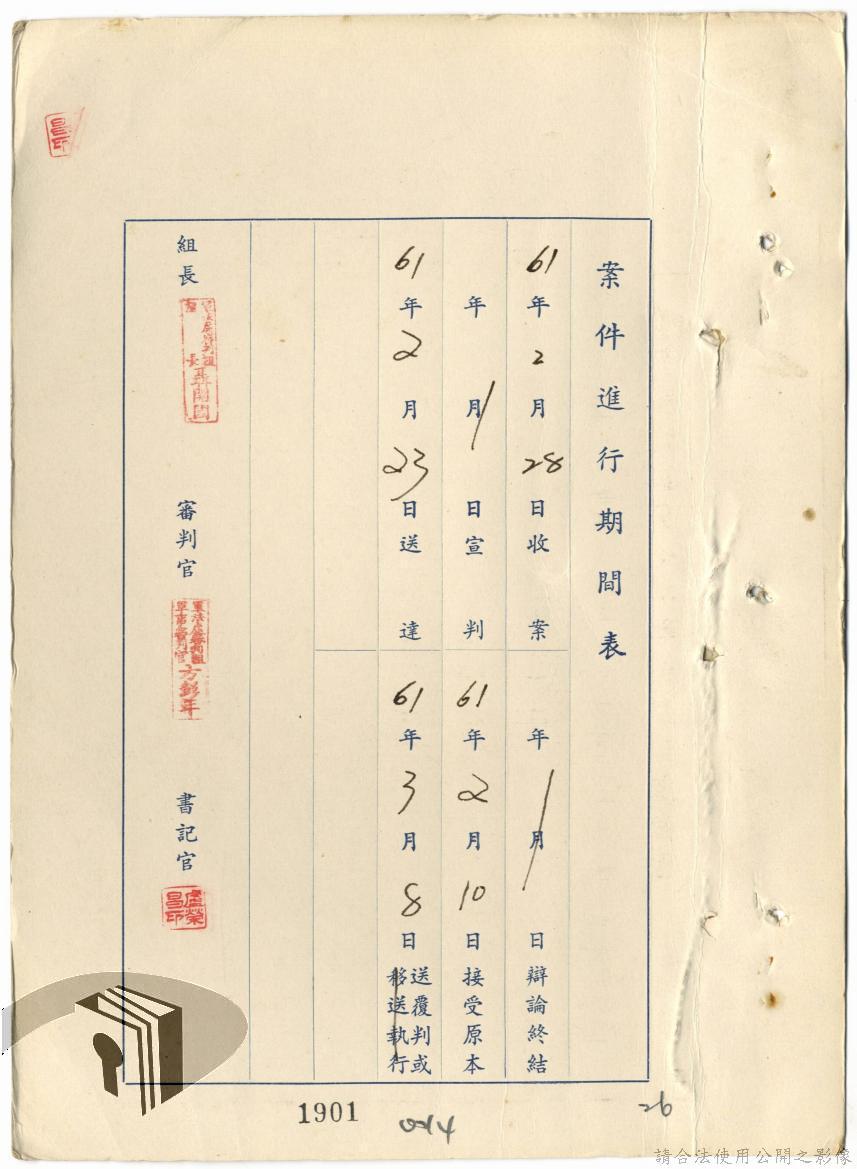 案件進行期間表
61年2月28日收案
年 月 日辯論終結
年 月 日宣判
61年2月10日接受原本
61年2月23日送達
61年3月8日送覆判或移送執行
組長
聶開國
審判官
方彭年
書記官
盧榮昌印
昌印
1901
26
請合法使用公開之影像